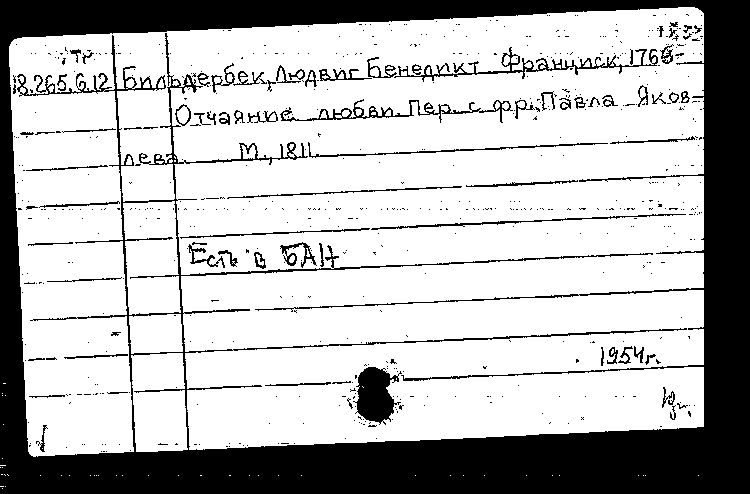 18.265.6.12 Бильдербек, Людвиг Бенедикт Франциск, 1766-
Отчаяние любви. Пер. с фр. Павла Яков-
лева. М., 1811.
Есть в БАН
1954 г.